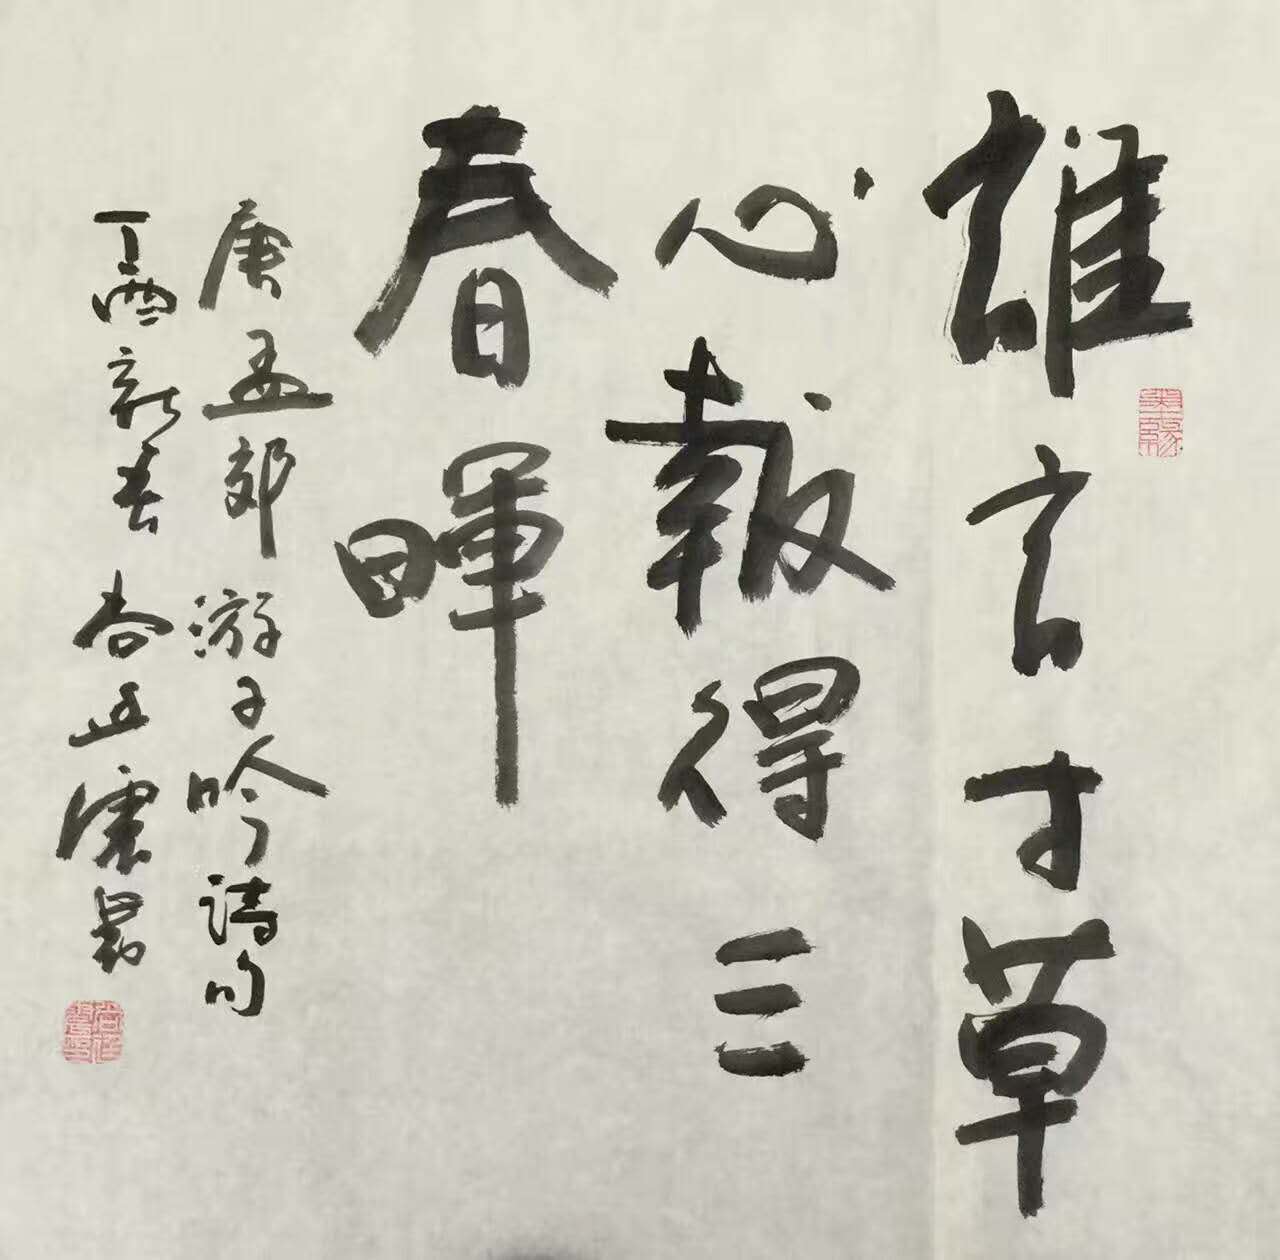 誰言寸草
心報得三
春暉
唐孟郊游子吟詩句
丁酉新春 尚正